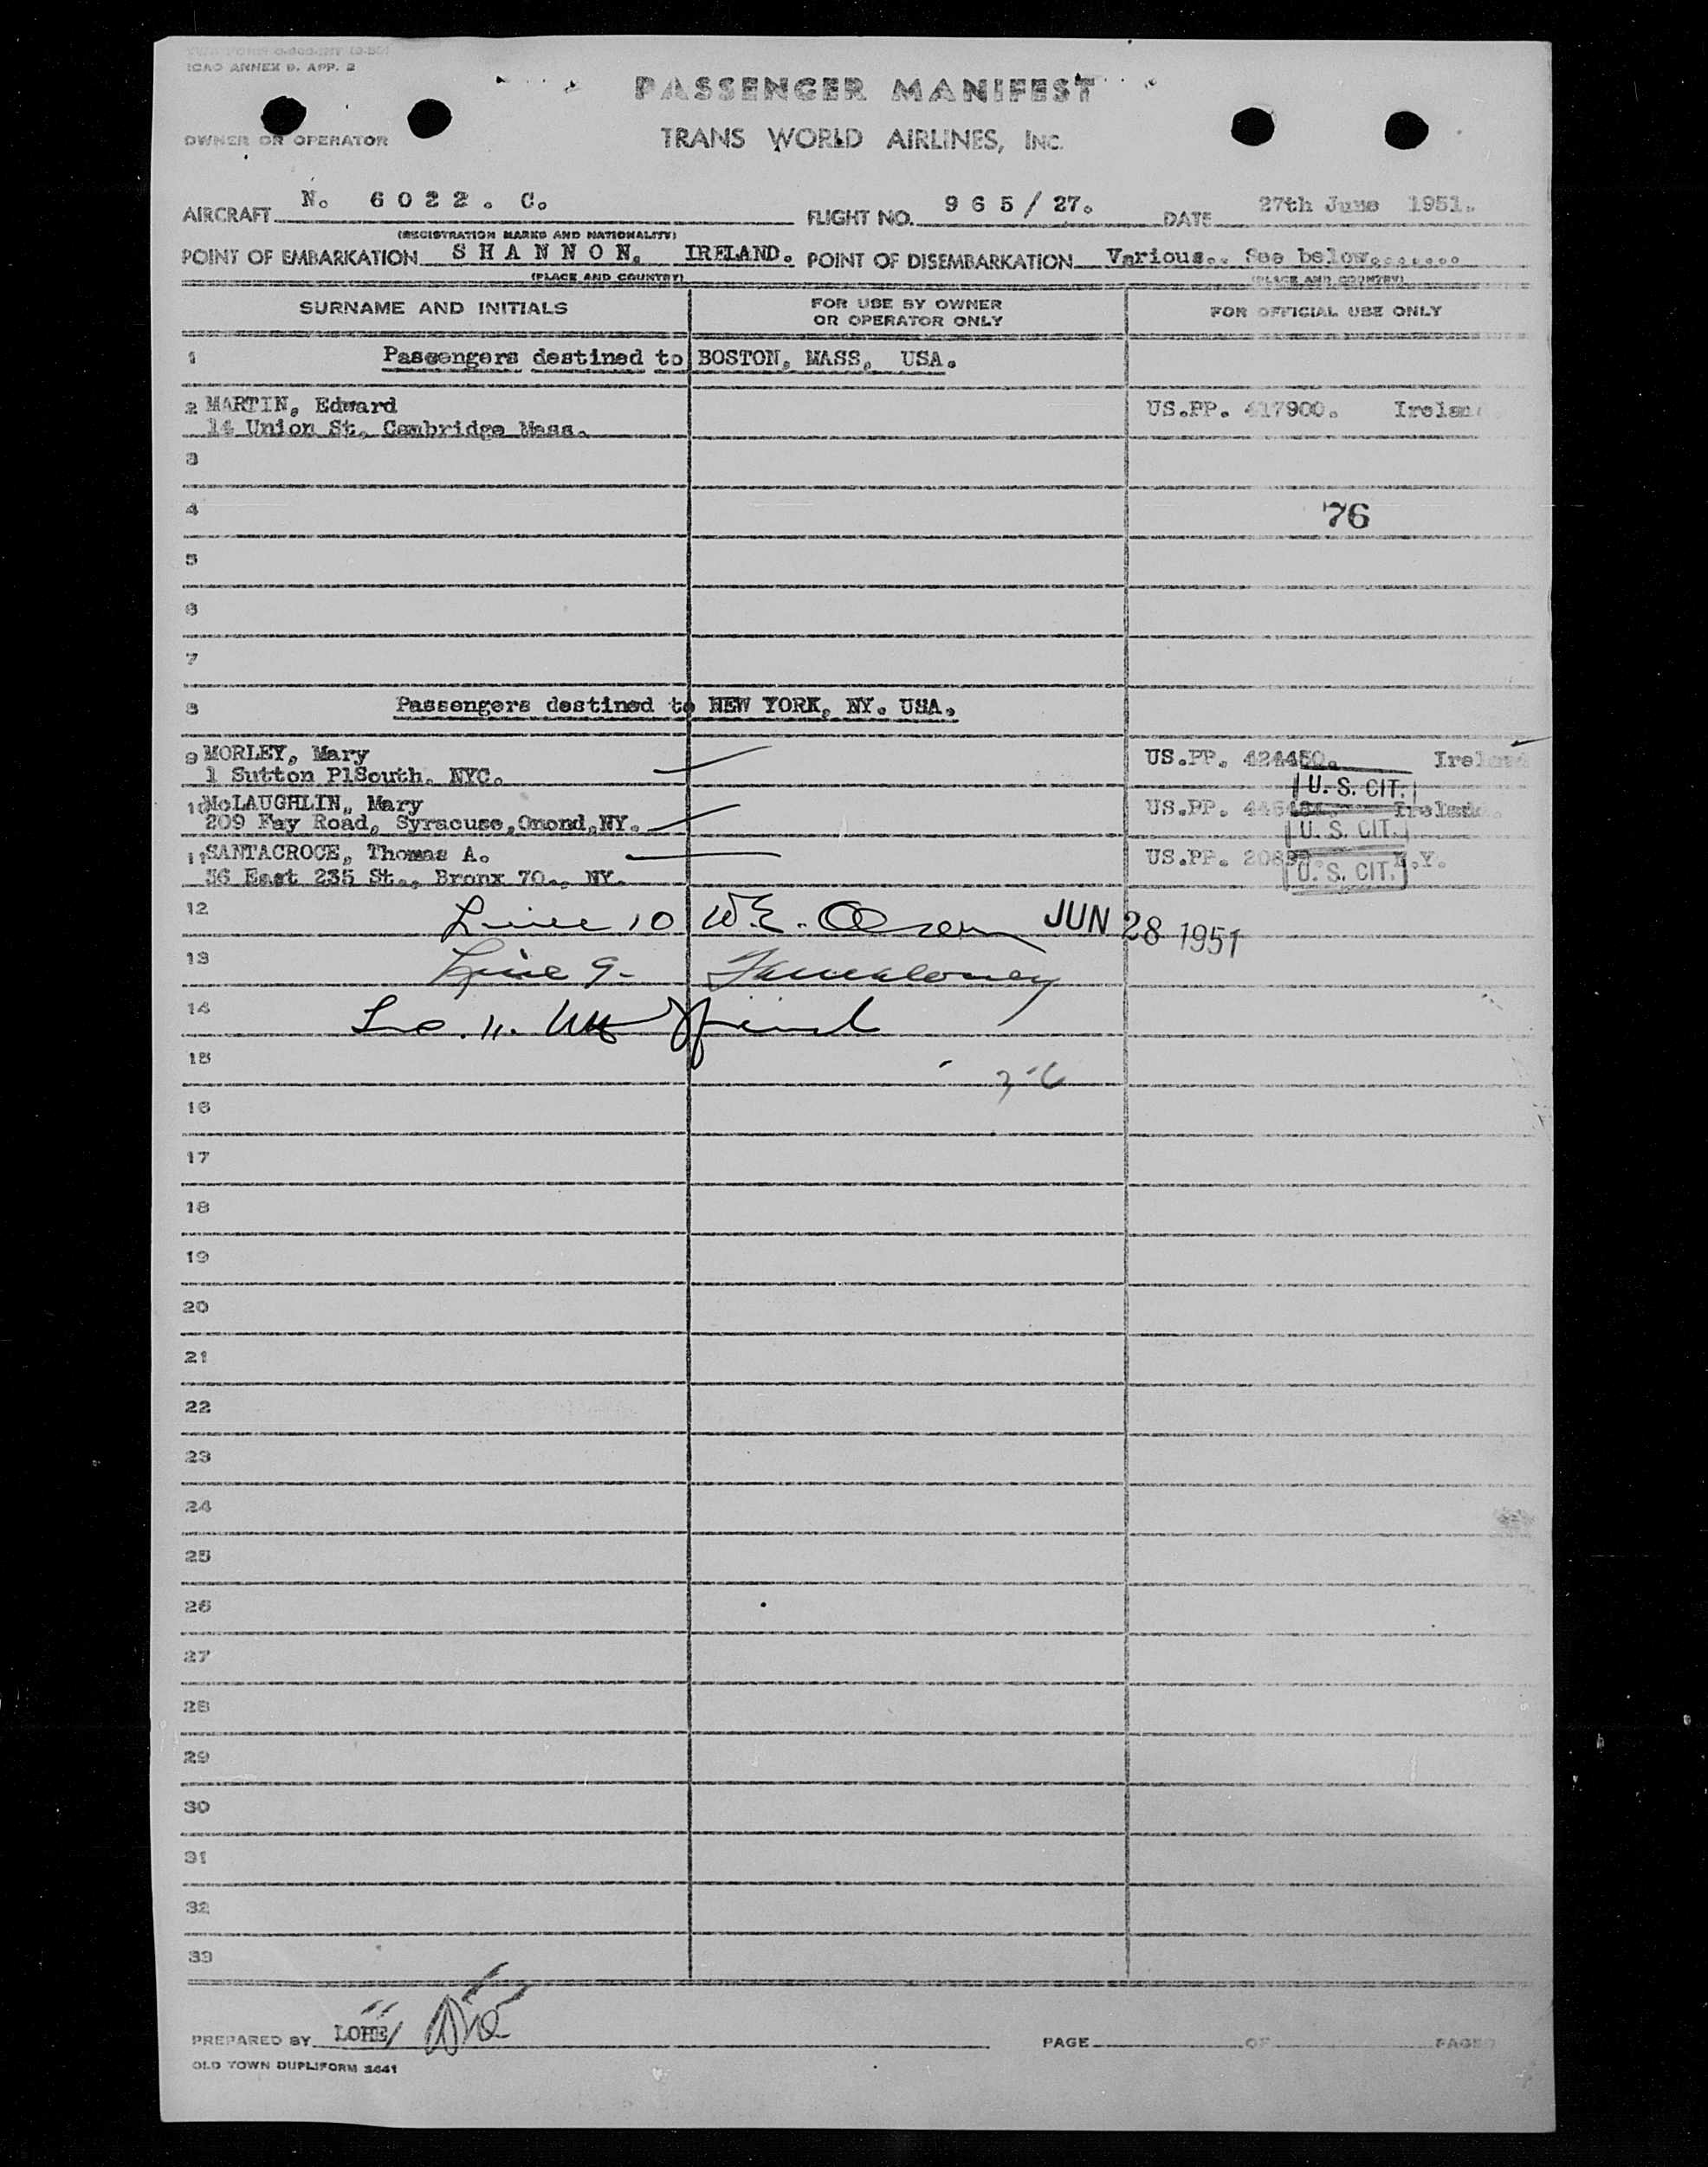 ICAO ANNEX 9. APP. 2
PASSENGER MANIFEST
OWNER OR OPERATOR
TRANS WORLD AIRLINES, INC.
AIRCRAFT N. 6022. C. FLIGHT NO. 965/27. DATE 27th June 1951.
(REGISTRATION MARKS AND NATIONALITY)
POINT OF EMBARKATION SHANNON, IRELAND. POINT OF DISEMBARKATION Various.. See below.......
(PLACE AND COUNTRY) (PLACE AND COUNTRY)
SURNAME AND INITIALS FOR USE BY OWNER OR OPERATOR ONLY FOR OFFICIAL USE ONLY
1 Passengers destined to BOSTON, MASS, USA.
2 MARTIN, Edward US.PP. 417900. Ireland
14 Union St, Cambridge Mass.
3
4 76
5
6
7
8 Passengers destined to NEW YORK, NY. USA.
9 MORLEY, Mary US.PP. 424450. Ireland
1 Sutton PlSouth. NYC. U. S. CIT.
10 McLAUGHLIN, Mary US.PP. Ireland.
209 Fay Road, Syracuse,Onond,NY. U. S. CIT.
11 SANTACROCE, Thomas A. US.PP. N.Y.
36 East 235 St., Bronx 70., NY. U. S. CIT.
12 Line 10 W.E. Olsen JUN 28 1951
13 Line 9-
14
15
16
17
18
19
20
21
22
23
24
25
26
27
28
29
30
31
32
33
PREPARED BY LOHE/ PAGE OF PAGES
OLD TOWN DUPLIFORM 3641